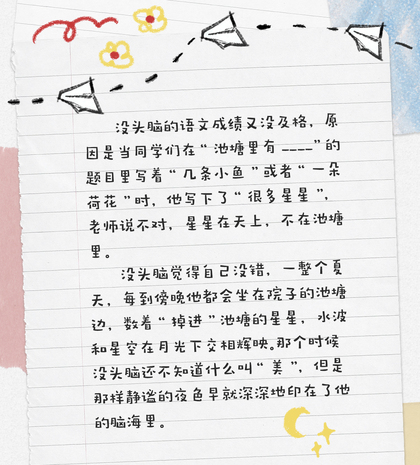 没头脑的语文成绩又没及格，原
因是当同学们在“池塘里有____”的
题目里写着“几条小鱼”或者“一朵
荷花”时，他写下了“很多星星”，
老师说不对，星星在天上，不在池塘
里。
没头脑觉得自己没错，一整个夏
天，每到傍晚他都会坐在院子的池塘
边，数着“掉进”池塘的星星，水波
和星空在月光下交相辉映。那个时候
没头脑还不知道什么叫“美”，但是
那样静谧的夜色早就深深地印在了他
的脑海里。